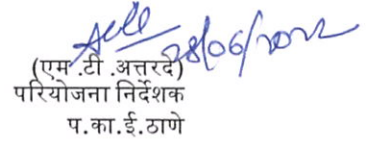 28/06/2022
(एम.टी.अत्तरदे)
परियोजना निर्देशक
प.का.ई.ठाणे